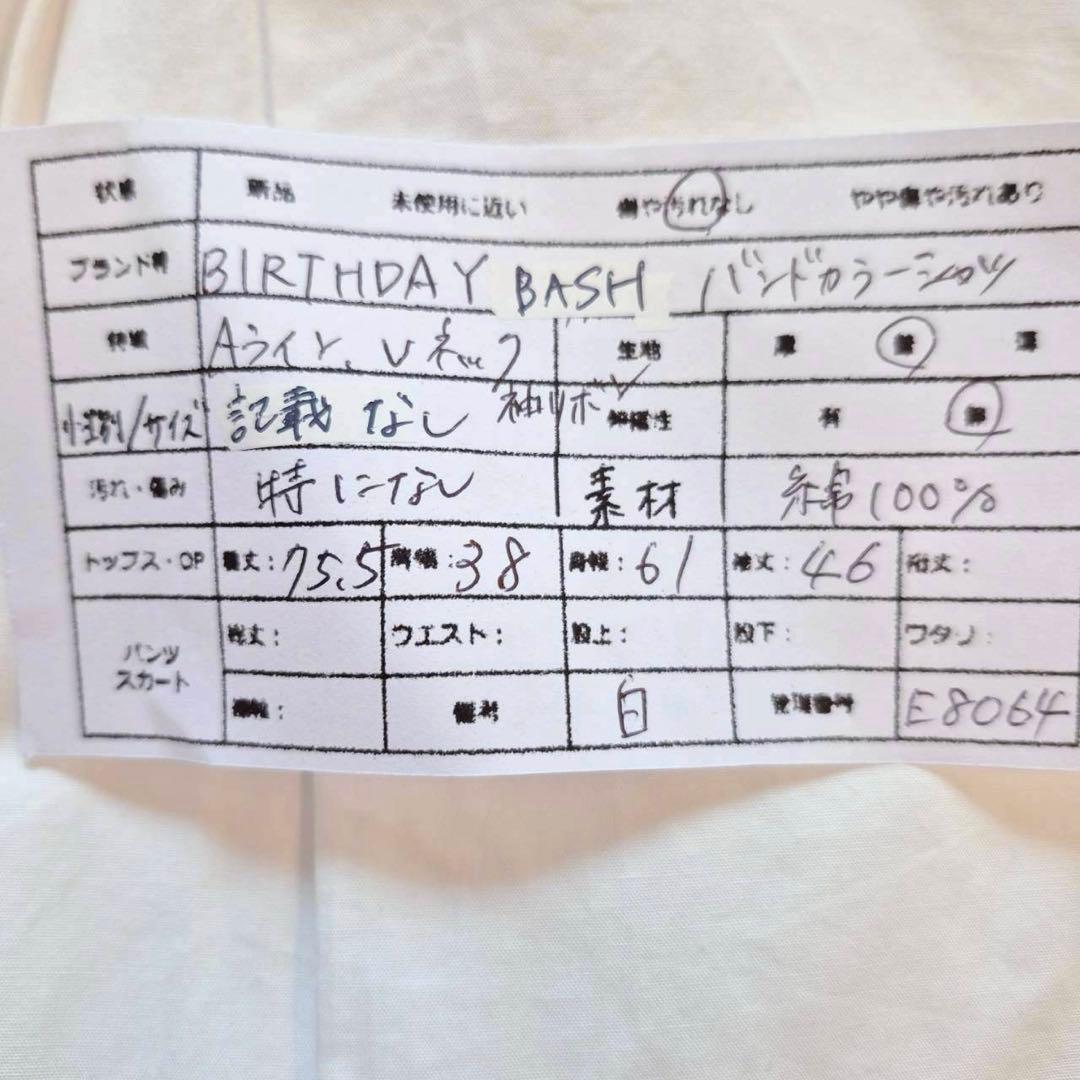 状態 新品 未使用に近い 傷や汚れなし やや傷や汚れあり
ブランド等 BIRTHDAY BASH バンドカラーシャツ
特徴 Aライン、Vネック 生地 厚 普 薄
性別/サイズ 記載なし 袖リボン 伸縮性 有 無
汚れ・傷み 特になし 素材 綿100%
トップス・OP 着丈:75.5 肩幅:38 身幅:61 袖丈:46 裄丈:
パンツ スカート 総丈: ウエスト: 股上: 股下: ワタリ:
裾幅: 備考 白 管理番号 E8064